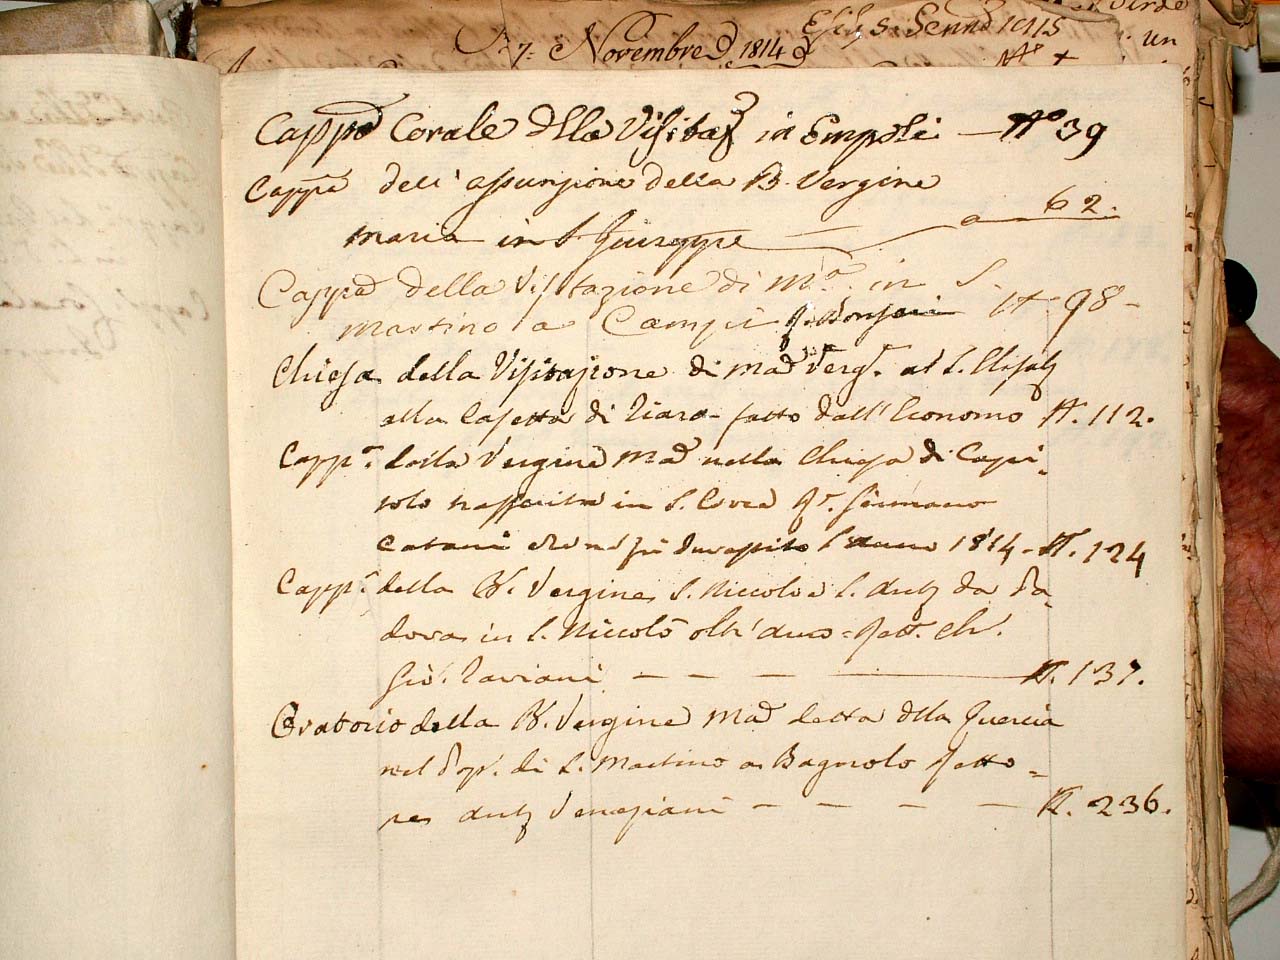 7. Novembre 1814
un
Capp.a Corale della Visitaz. in Empoli — N.o 39
Capp.a dell'assunzione della B. Vergine
maria in S. Giuseppe — 62.
Capp.a della Visitazione di M.a in S.
Martino a Campi — 98 -
Chiesa della Visitazione di Ma Verg. a S.
alla Casetta di - fatto dall'Economo N. 112.
Capp.a della Vergine Ma nella Chiesa di Capi-
tolo in S. Germano
Catani 1814 - N. 124
Capp.a della B. Vergine, S. Niccolò e S. Ant. da Pa-
dova in S. Niccolò oltr'arno = fatt. Ch.
Gio. Taviani — — — N. 137.
Oratorio della B. Vergine Ma detta della Quercia
nel Pop. di S. Martino a Bagnolo fatto=
re Ant. Veneziani — — — — N. 236.